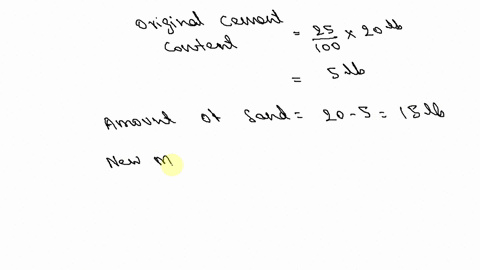 Original Cement Content = 25/100 × 20 lb
= 5 lb
Amount of Sand = 20 - 5 = 15 lb
New m